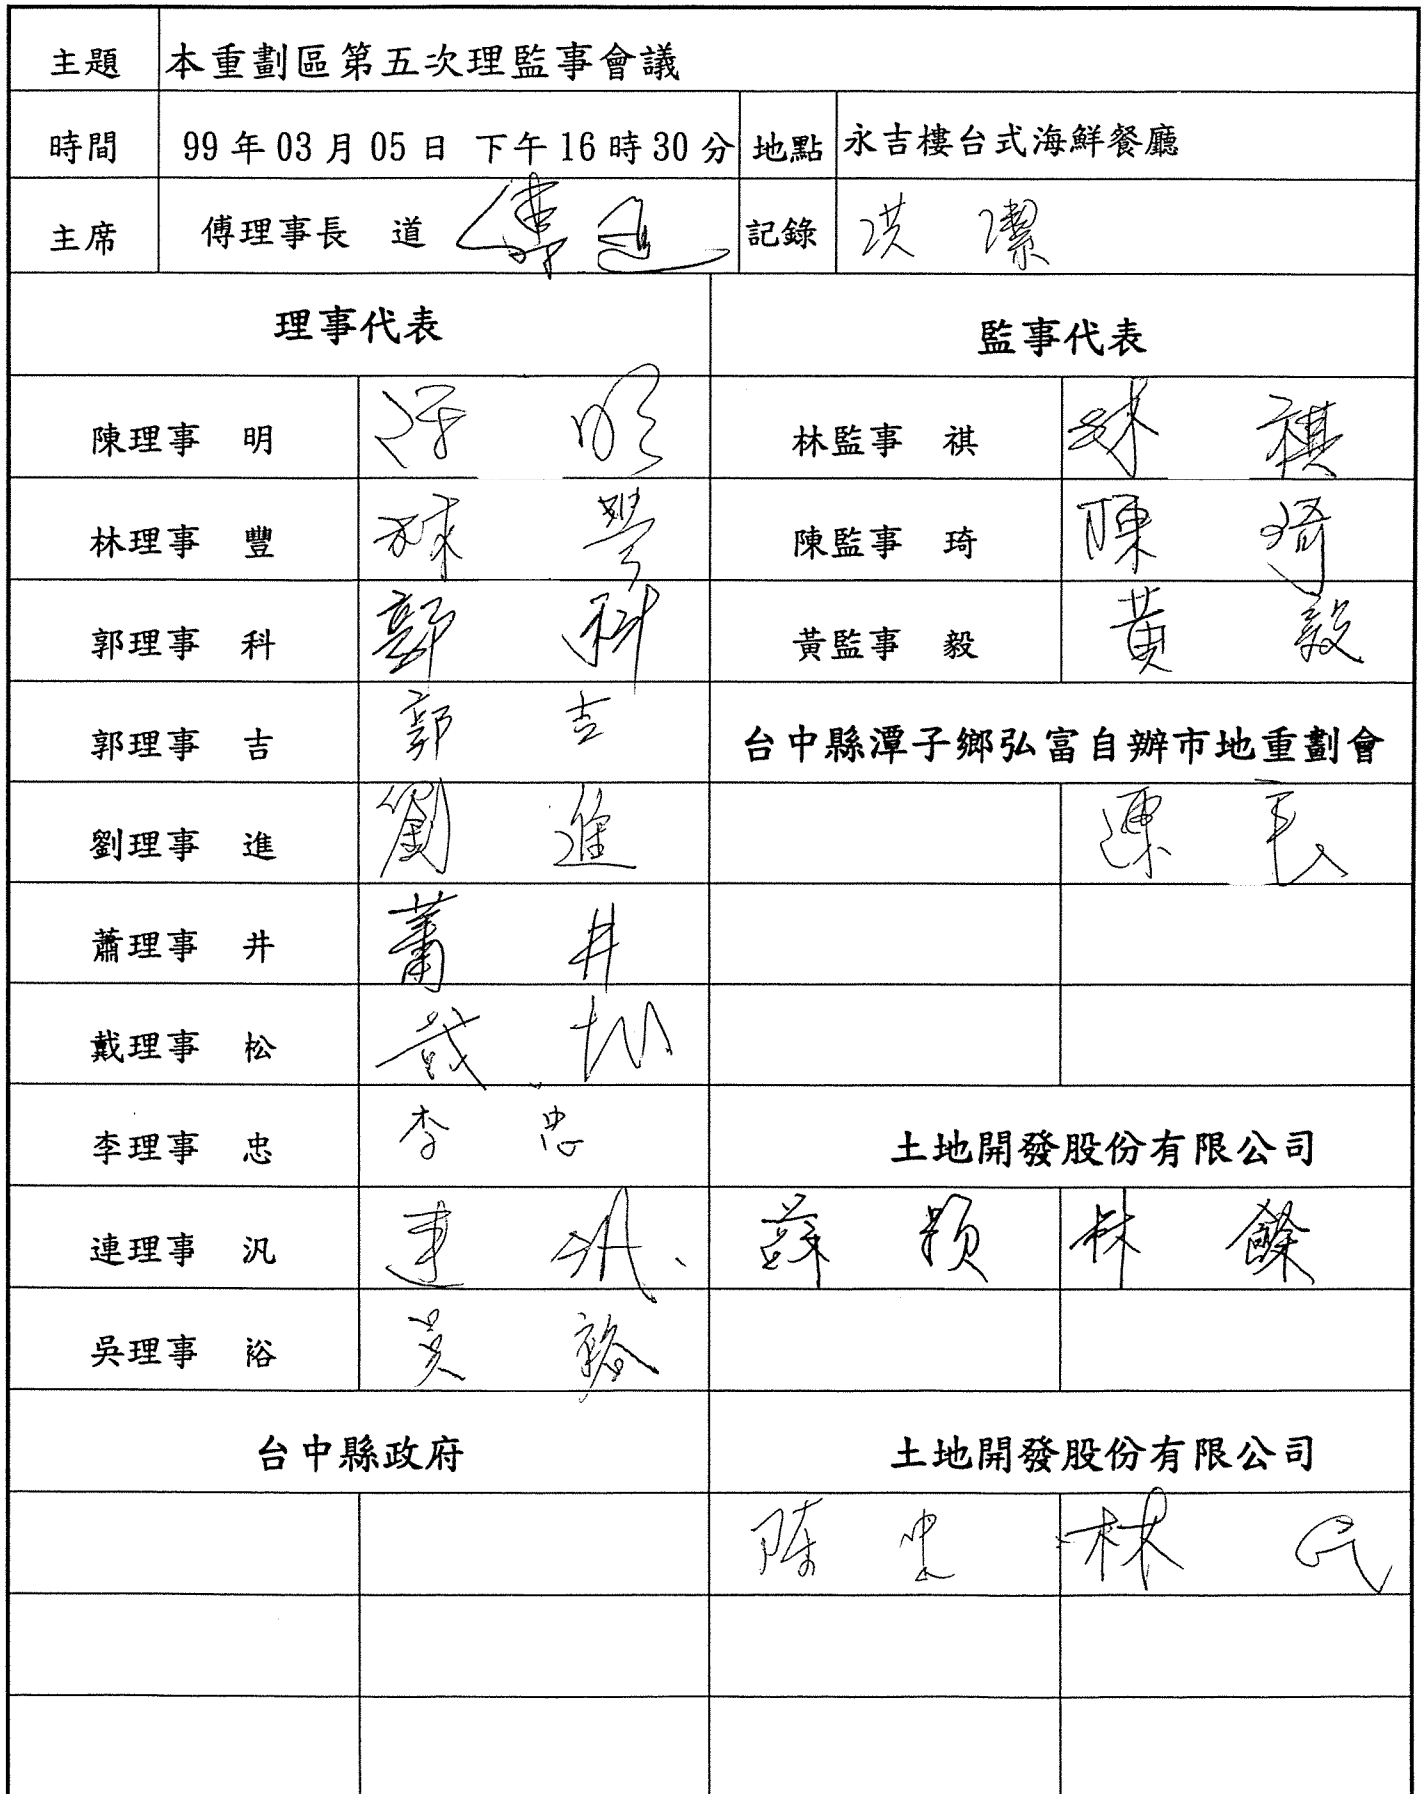 主題 本重劃區第五次理監事會議
時間 99年03月05日 下午16時30分 地點 永吉樓台式海鮮餐廳
主席 傅理事長 道 傅 道 記錄 洪 潔
理事代表 監事代表
陳理事 明 陳 明 林監事 祺 林 祺
林理事 豐 林 豐 陳監事 琦 陳 琦
郭理事 科 郭 科 黃監事 毅 黃 毅
郭理事 吉 郭 吉 台中縣潭子鄉弘富自辦市地重劃會
劉理事 進 劉 進 陳
蕭理事 井 蕭 井
戴理事 松 戴 松
李理事 忠 李 忠 土地開發股份有限公司
連理事 汎 連 汎 蘇 穎 林
吳理事 裕 吳 裕
台中縣政府 土地開發股份有限公司
陳 忠 林